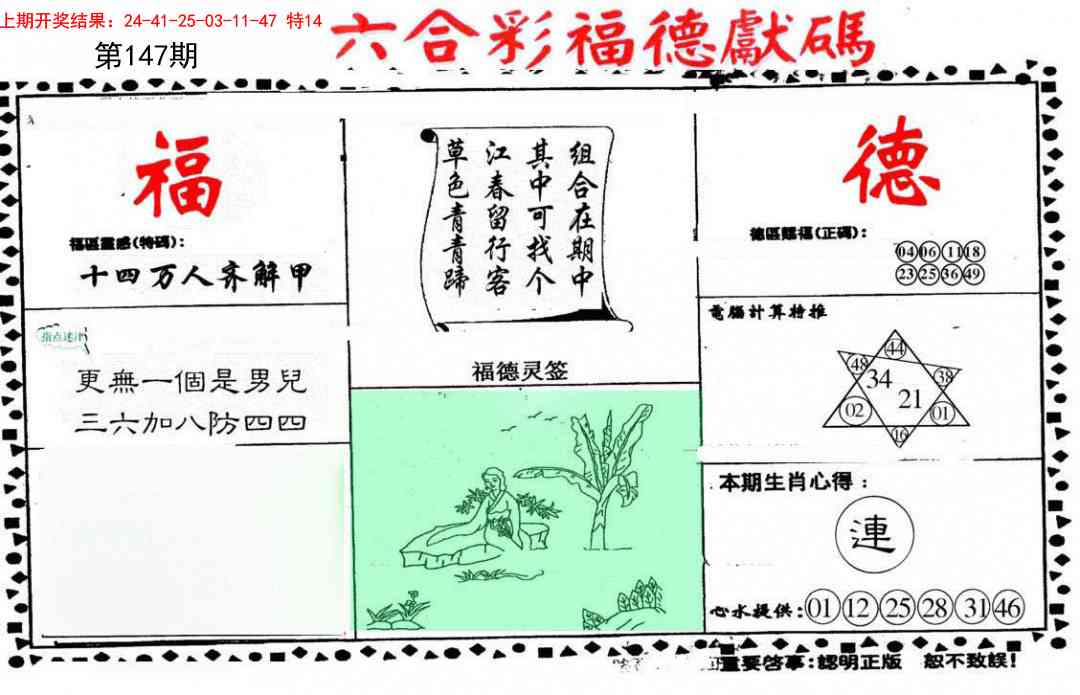 上期开奖结果：24-41-25-03-11-47 特14
第147期
六合彩福德獻碼
福
福區靈感(特碼)：
十四万人齐解甲
指点迷津
更無一個是男兒
三六加八防四四
组合在期中
其中可找个
江春留行客
草色青青蹄
福德灵签
德
德區賜福(正碼)：
04 06 11 18
23 25 36 49
電腦計算特推
44
48 38
34 21
02 01
16
本期生肖心得：
連
心水提供：01 12 25 28 31 46
重要啓事：認明正版 恕不致誤！